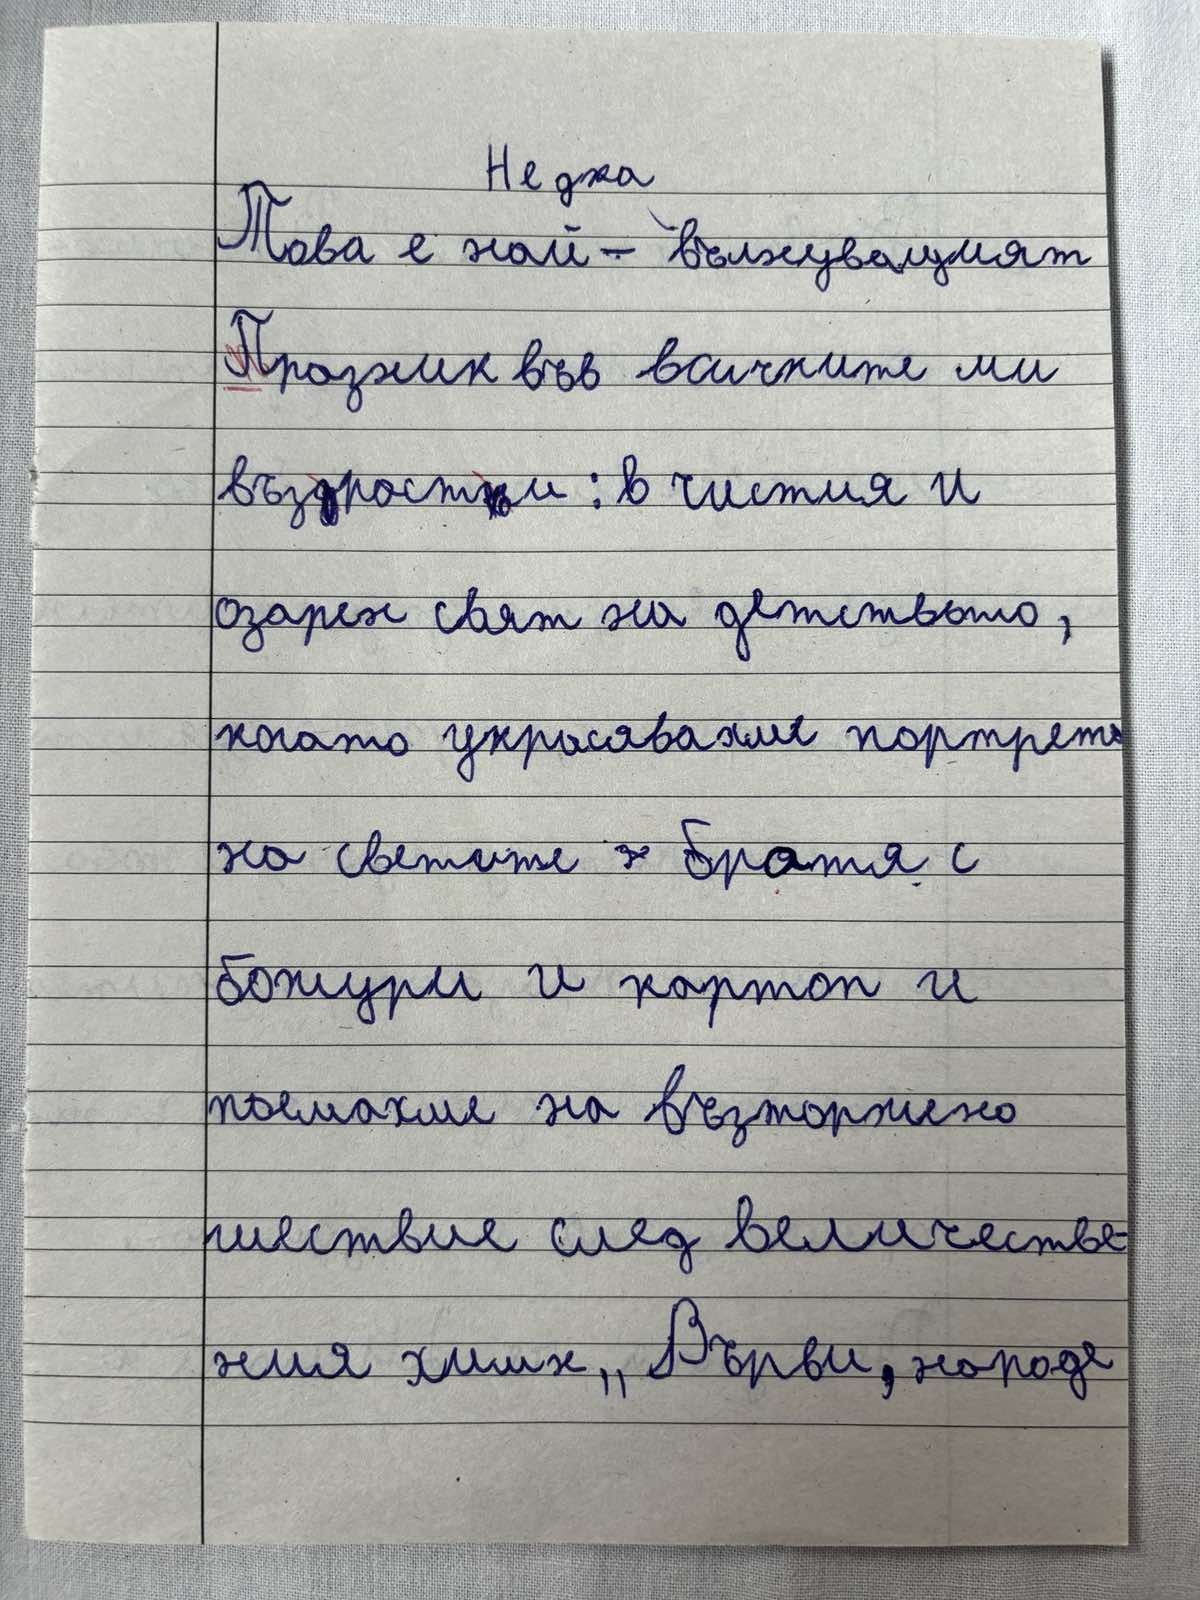 Неджа
Това е най-вълнуващият
Празник във всичките ми
въздрасти: в чистия и
озарен свят на детството,
когато украсявахме портрета
на светите братя с
божури и картоп и
поемахме на възторжено
шествие след величестве-
ния химн „Върви, народе